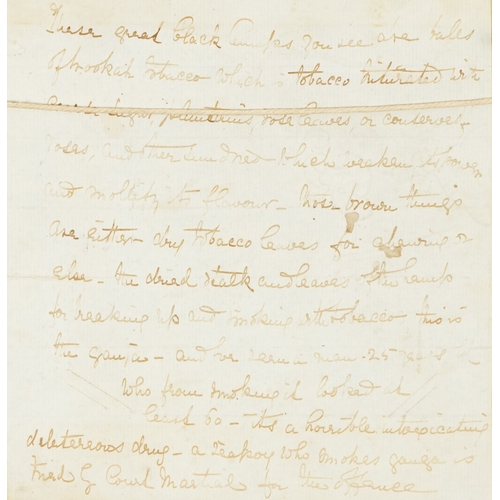 These great black lumps you see are balls
of hookah Tobacco which is tobacco triturated with
sugar, plantains, rose leaves or conserves
roses, and other hundred which weaken its power
and mollify its flavour - those brown things
are either dry tobacco leaves for chewing or
else - the dried stalk and leaves of the hemp
for breaking up and smoking with tobacco this is
the ganja - and I've seen a man 25
who from smoking it looked at
least 60 - its a horrible intoxicating
deletereous drug - a Seapoy who smokes ganja is
tried by Court Martial for the offence